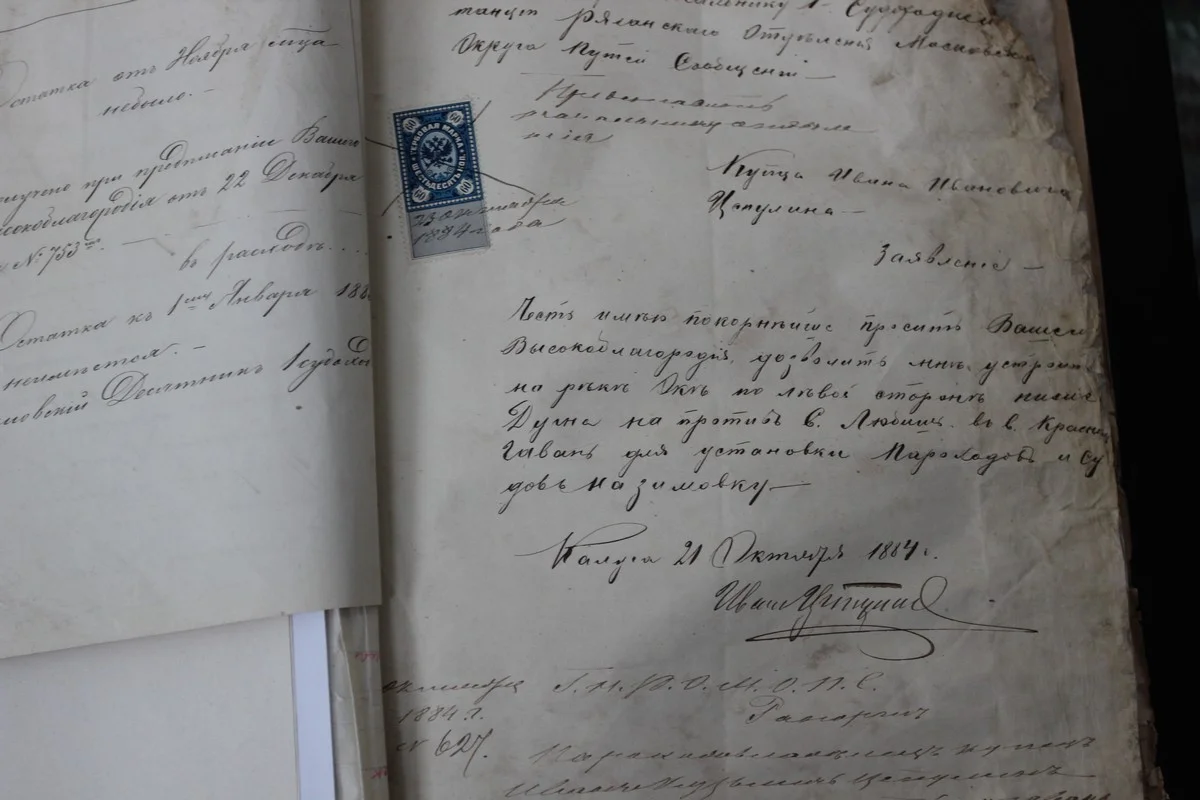 Остатка отъ Ноября м͠ца
небыло. –
получено при предписаніи Вашего
Высокоблагородія отъ 22 Декабря
№ 753
въ расходъ. . . .
Остатка къ 1 Января 188
неимѣется. –
Десятникъ 1 судохо
1. Судоходной
танціи Рязанскаго Отдѣленія Московскаго
Округа Путей Сообщеній –
60 60
ГЕРБОВАЯ МАРКА
ШЕСТЬДЕСЯТЪ КОП.
60 60
23 октября
1884 года
Купца Ивана Ивановича
Цыпулина –
Заявленіе –
Честь имѣю покорнѣйше просить Вашего
Высокоблагородія, дозволить мнѣ устроить
на рѣкѣ Окѣ по лѣвой сторонѣ ниже
Дугна на противъ С. Любицъ въ в. Красной
Гавань для установки Пароходовъ и Су
довъ на зимовку –
Калуга 21 Октября 1884 г.
Иван Цыпулин
октября Г. Н. Р. О. М. О. П. С.
1884 г.
№ 627.
Пароходовладѣлецъ купецъ
Цыпулинъ